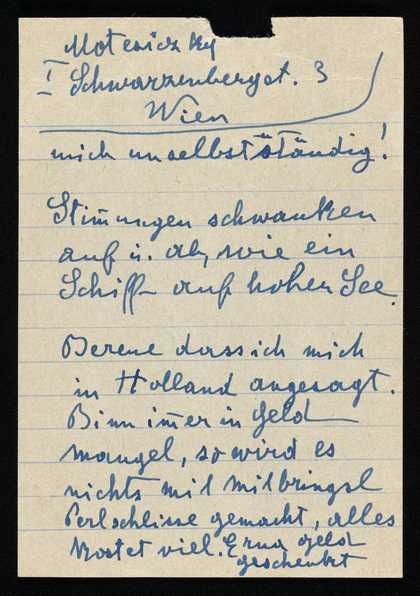 Motesiczky
I Schwarzenbergst. 3
Wien
mich unselbstständig!
Stim̅ungen schwanken
auf u. ab, wie ein
Schiff auf hoher See.
Bereue dass ich mich
in Holland angesagt.
Binn im̅er in Geld
mangel, so wird es
nichts mit
Perl gemacht, alles
kostet viel. Erna Geld
geschenkt